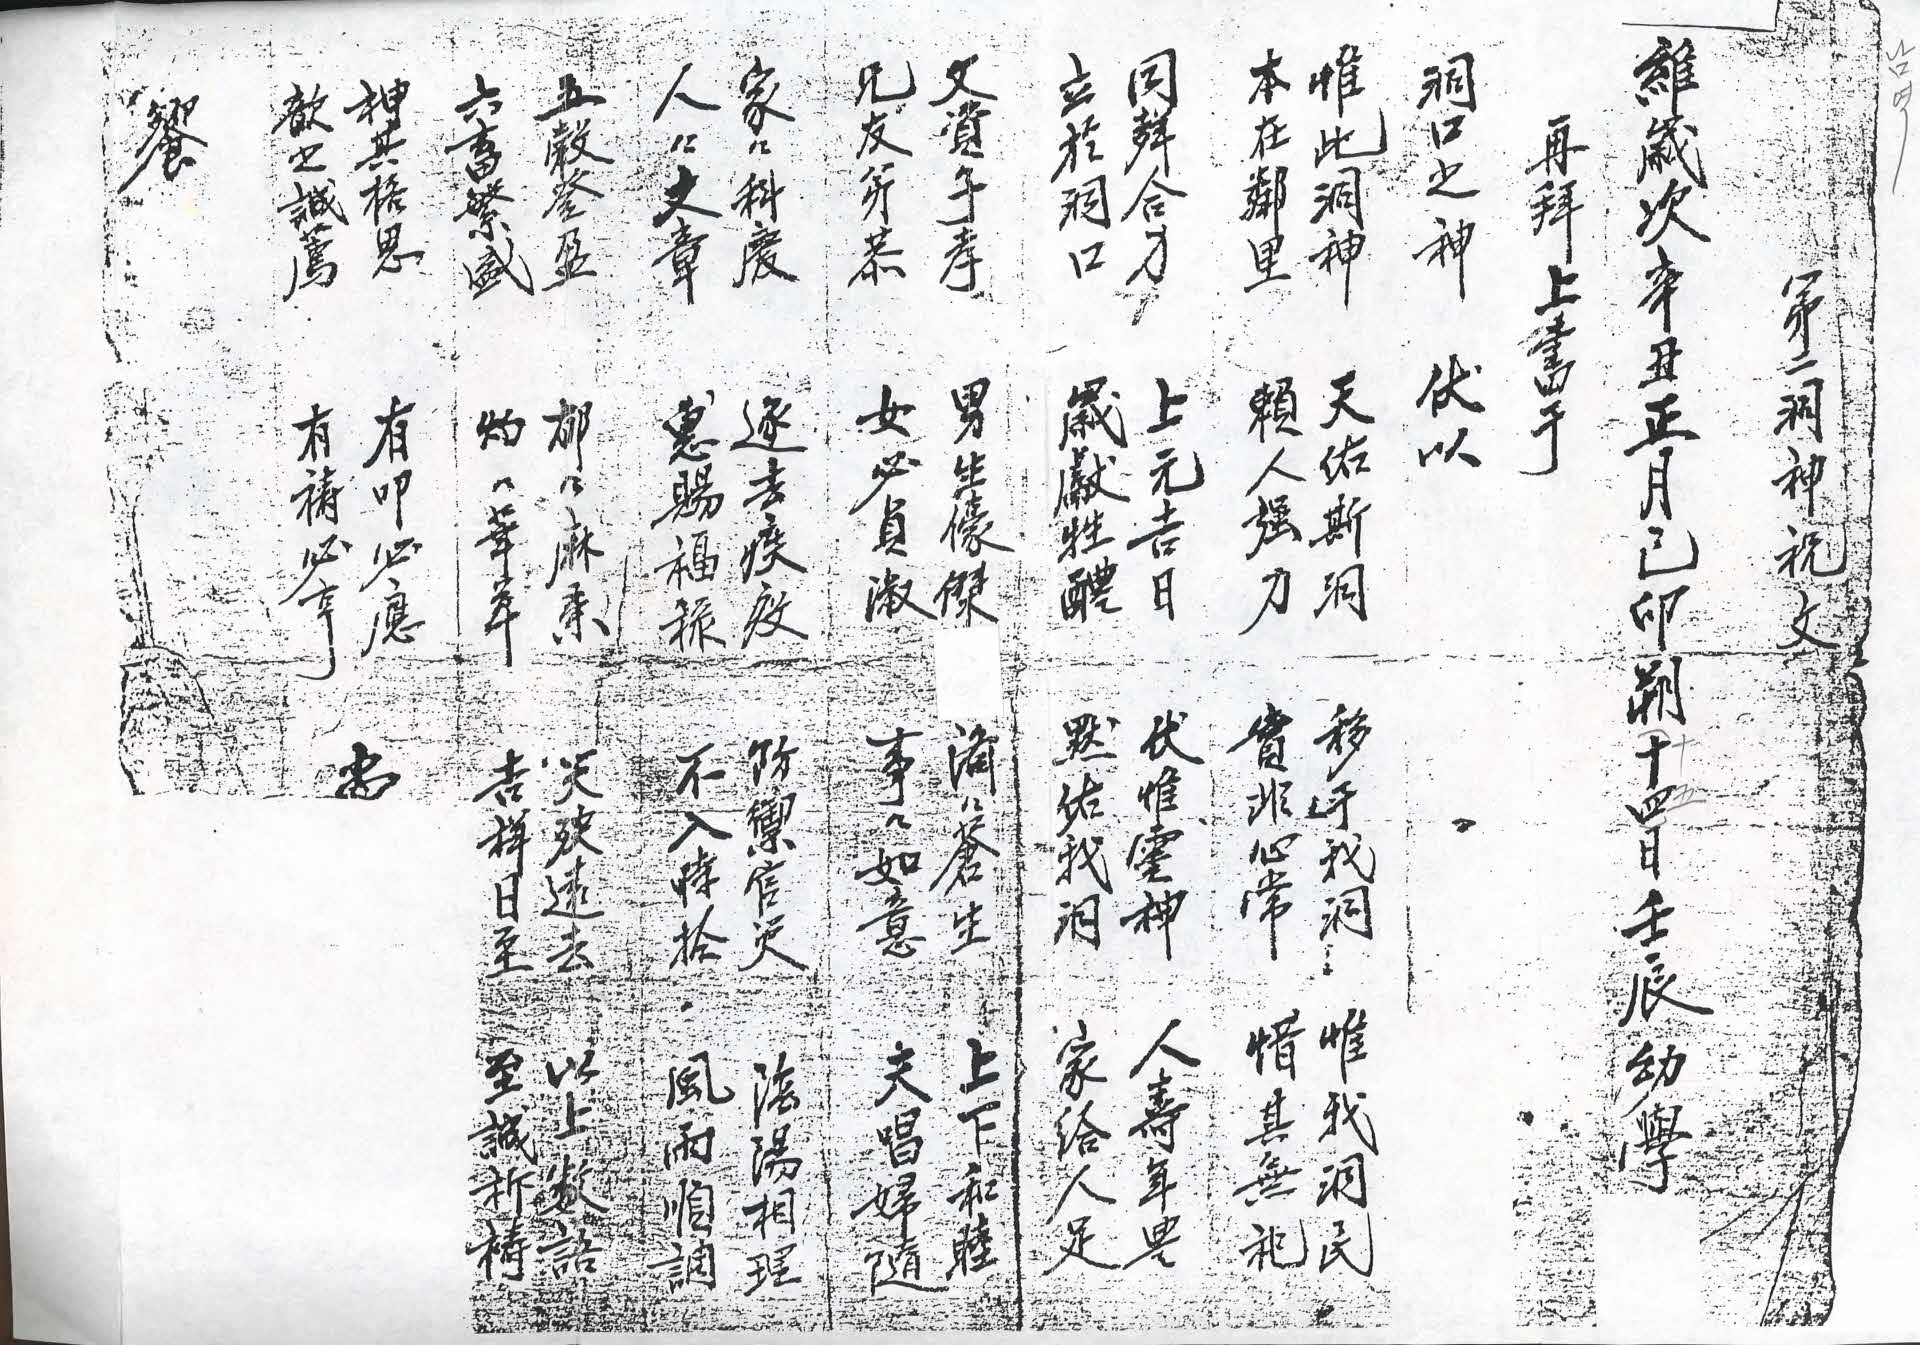 第二洞神祝文
維歲次辛丑正月己卯朔十四日壬辰幼學
十五
再拜上書于
洞口之神 伏以
惟此洞神 天佑斯洞 移于我洞 惟我洞民
本在鄰里 賴人强力 實非心常 惜其無祀
同聲合力 上元吉日 伏惟靈神 人壽年豊
立於洞口 歲獻牲醴 默佑我洞 家給人足
父資子孝 男生傑 濟〃蒼生 上下和睦
兄友弟恭 女必貞淑 事〃如意 夫唱婦隨
家〃科慶 逐去疾疫 防禦官灾 陰陽相理
人〃文章 惠賜福祿 不入 風雨順調
五穀登盈 郁〃麻桑 灾殃遠去 以上数語
六畜繁盛 灼〃華 吉祥日至 至誠祈禱
神其格思 有叩必應
歆之誠薦 有禱必亨 尙
饗